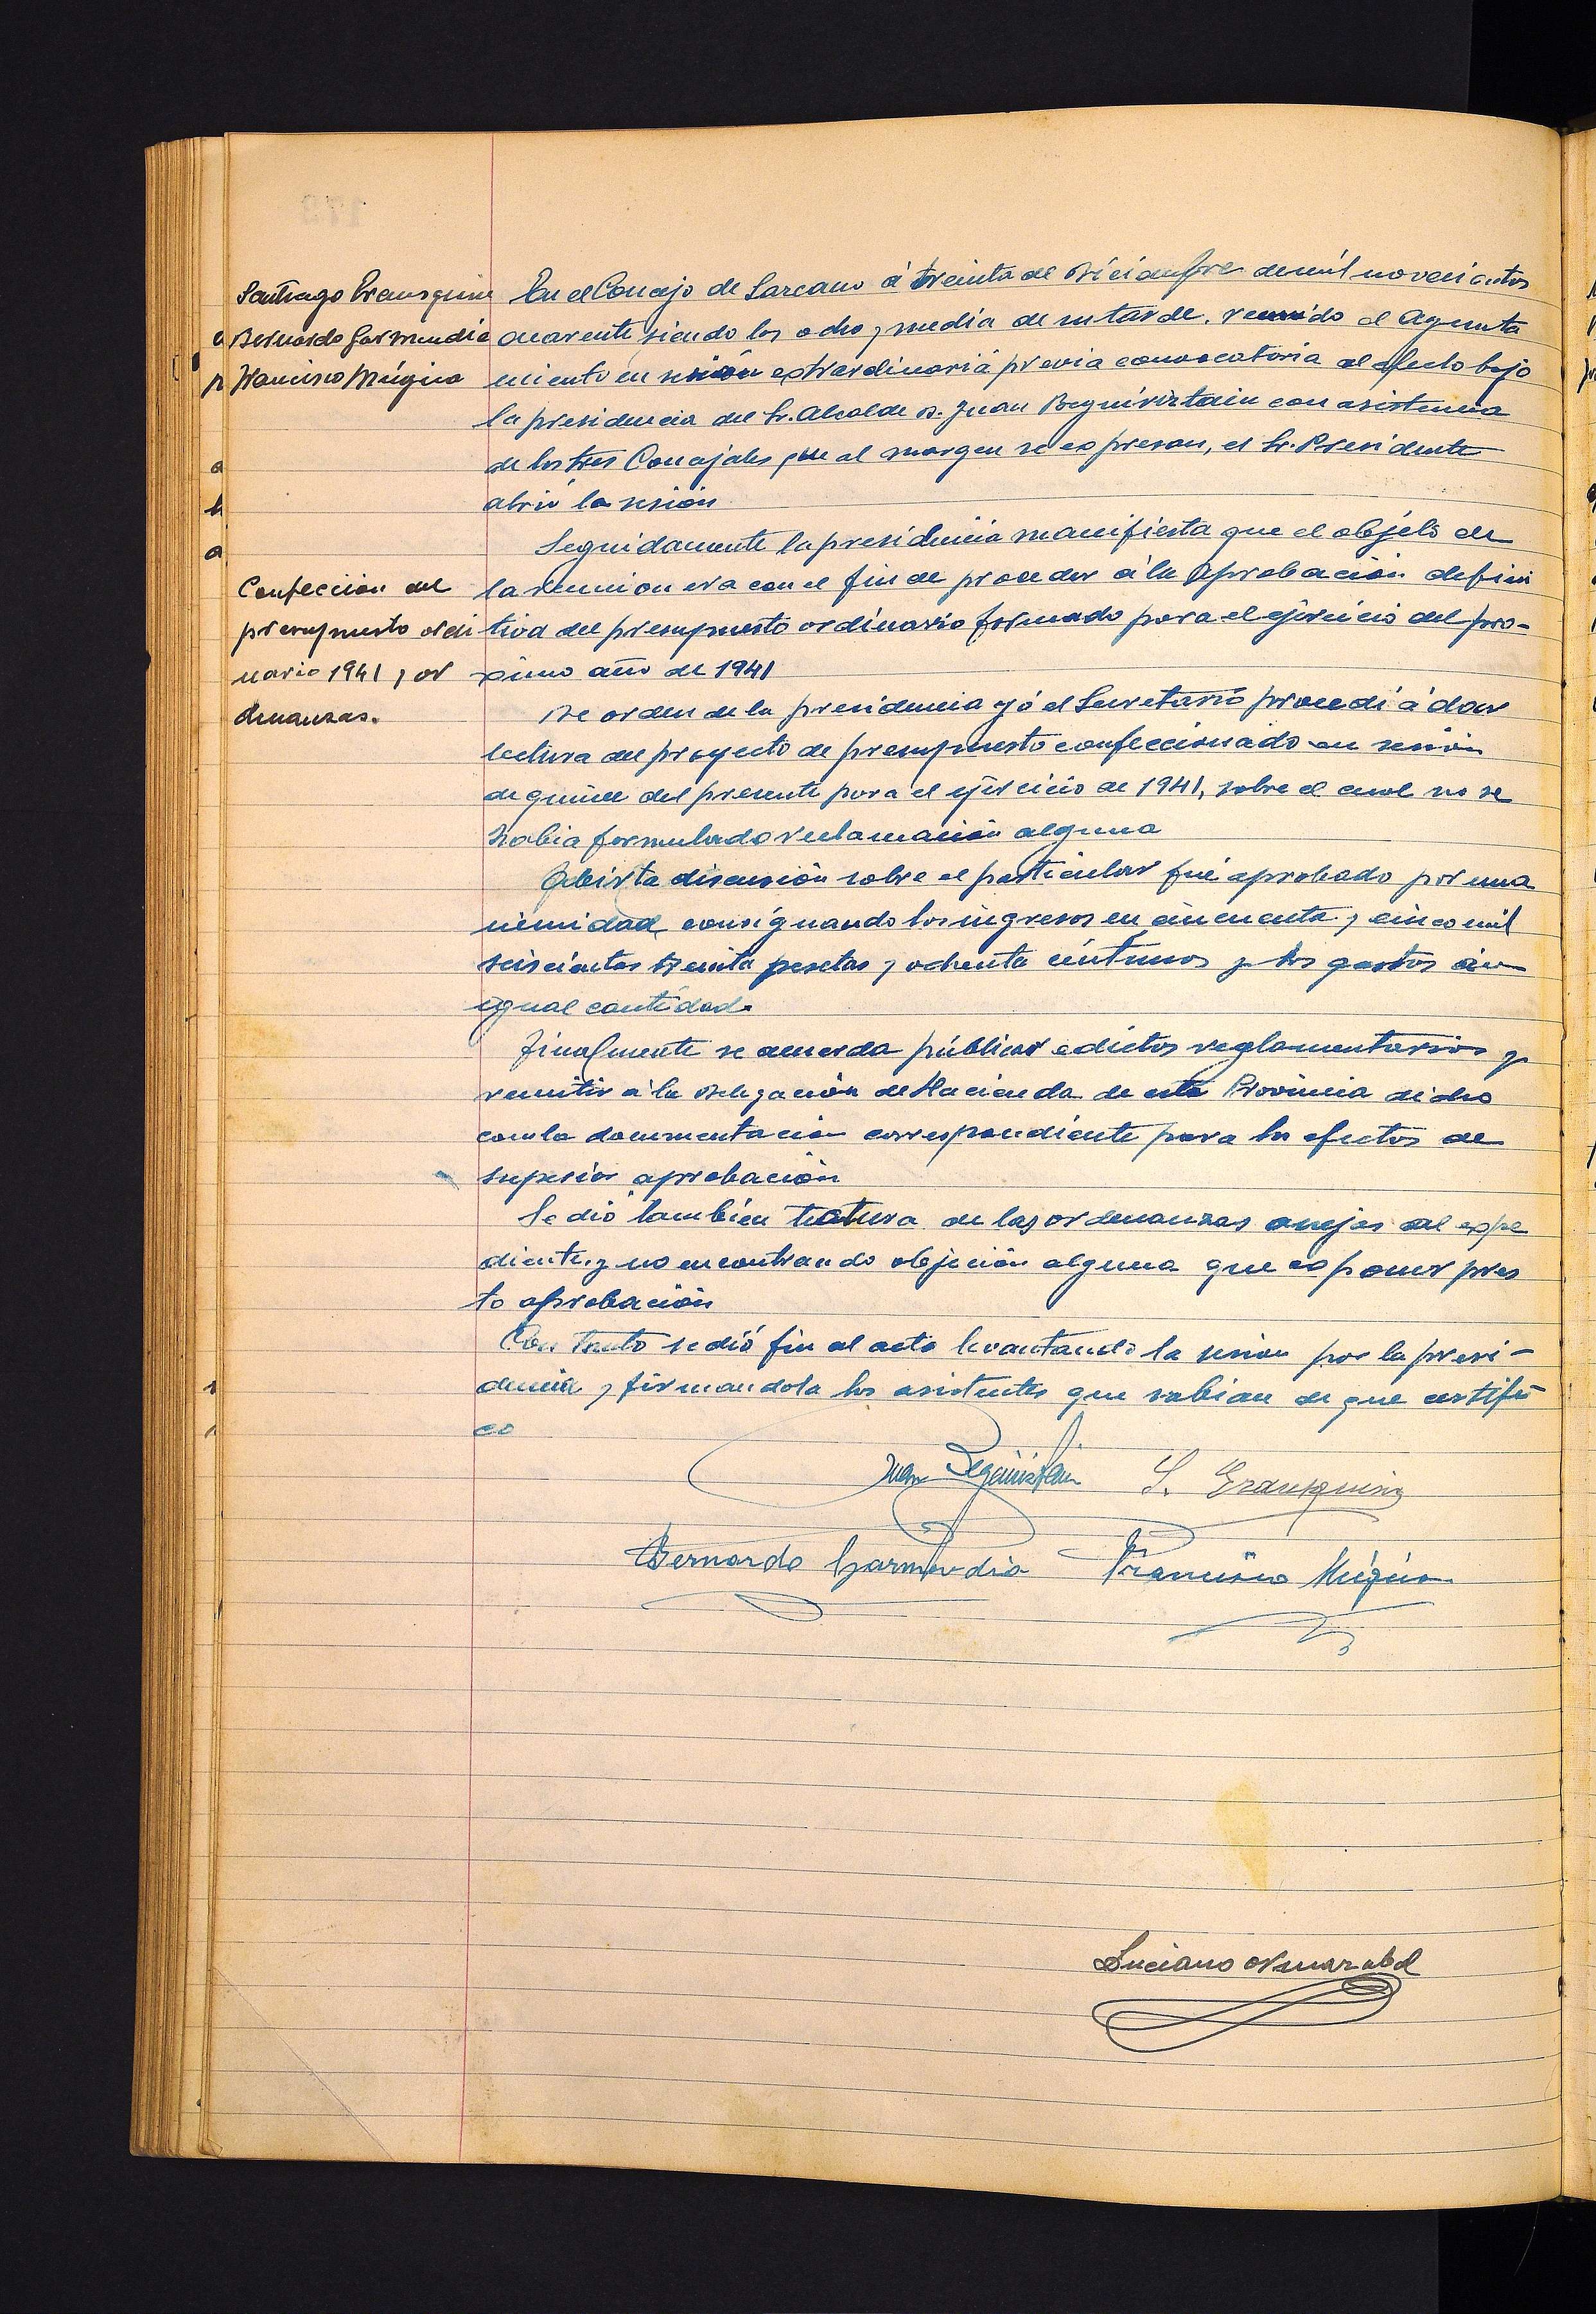 Santiago Erausquin
Bernardo Garmendia
Francisco Múgica
En el Concejo de Lazcano á treinta de Diciembre de mil novecientos
cuarenta siendo las ocho y media de su tarde, reunido el Ayunta
miento en sesión extraordinaria previa convocatoria al efecto bajo
la presidencia del Sr. Alcalde D. Juan Beguiristain con asistencia
de los tres Concejales que al margen se expresan, el Sr. Presidente
abrió la sesión
Seguidamente la presidencia manifiesta que el objeto de
Confeccion del
presupuesto ordi
nario 1941 y or
denanzas.
la reunion era con el fin de proceder á la Aprobación defini
tiva del presupuesto ordinario formado para el ejercicio del pro-
ximo año de 1941
De orden de la presidencia yó el Secretario procedí á dar
lectura del proyecto de presupuesto confeccionado en sesión
de quince del presente para el ejercicio de 1941, sobre el cual no se
habia formulado reclamación alguna
Abierta discusión sobre el particular fué aprobado por una
nimidad consignando los ingresos en cincuenta y cinco mil
seiscientas treinta pesetas y ochenta céntimos y los gastos en
igual cantidad.
Finalmente se acuerda públicar edictos reglamentarios y
remitir á la Delegación de Hacienda de esta Provincia dicho
con la documentacion correspondiente para los efectos de
superior aprobación
Se dió también lectura de las ordenanzas anejas al expe
diente, y no encontrando objeción alguna que exponer pres
to aprobación
Con tanto se dió fin al acto levantando la sesion por la presi-
dencia y firmandola los asistentes que sabian de que certifi-
co
Juan Beguiristain S. Erausquin
Bernardo Garmendia Francisco Múgica
Luciano Ormazabal